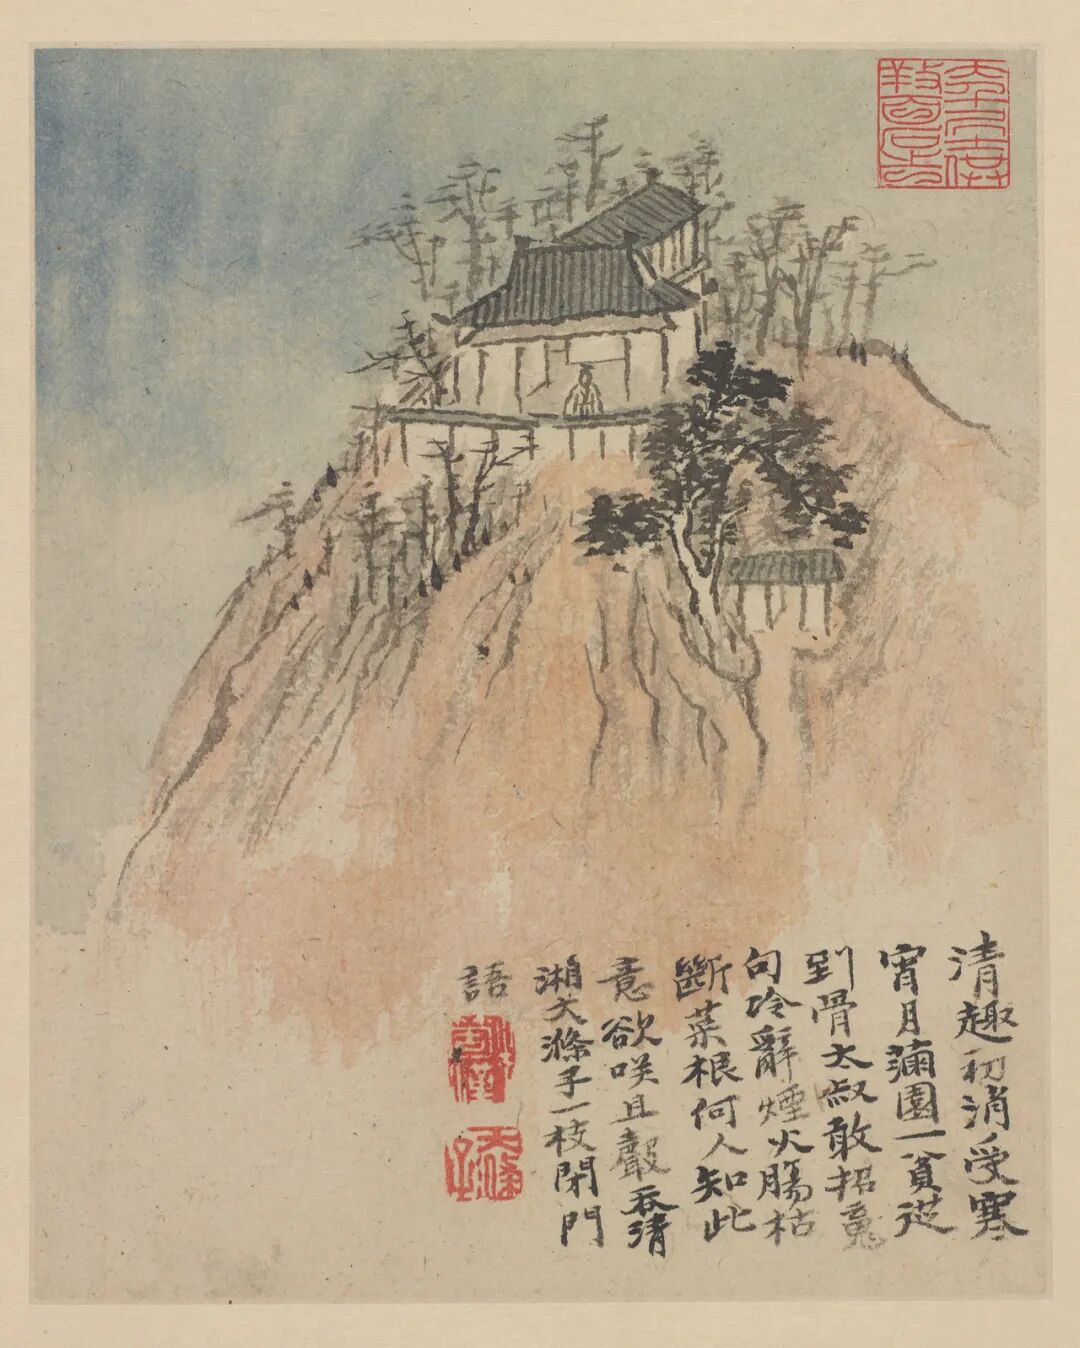 清趣初消受寒
宵月滿園一貧從
到骨太叔敢招䰟
句冷辭煙火腸枯
斷菜根何人知此
意欲咲且聲吞清
湘大滌子一枝閉門
語